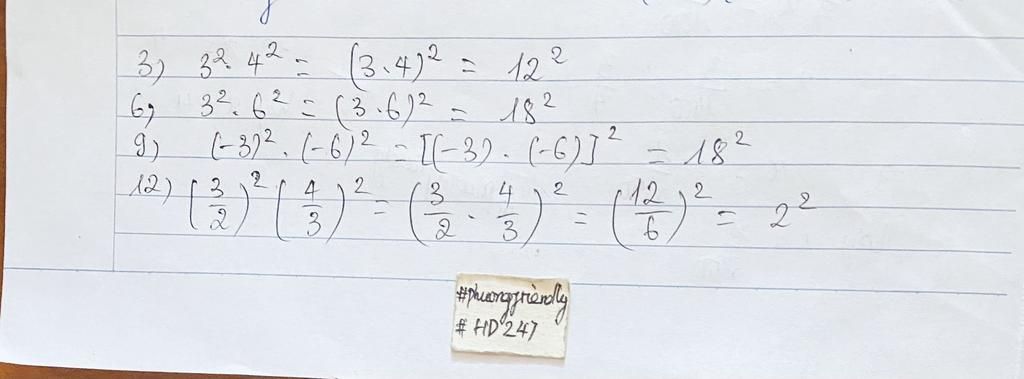 3) 3² · 4² = (3 · 4)² = 12²
6) 3² · 6² = (3 · 6)² = 18²
9) (-3)² · (-6)² = [(-3) · (-6)]² = 18²
12) (3/2)² (4/3)² = (3/2 · 4/3)² = (12/6)² = 2²
#phuongfriendly
# HD 247